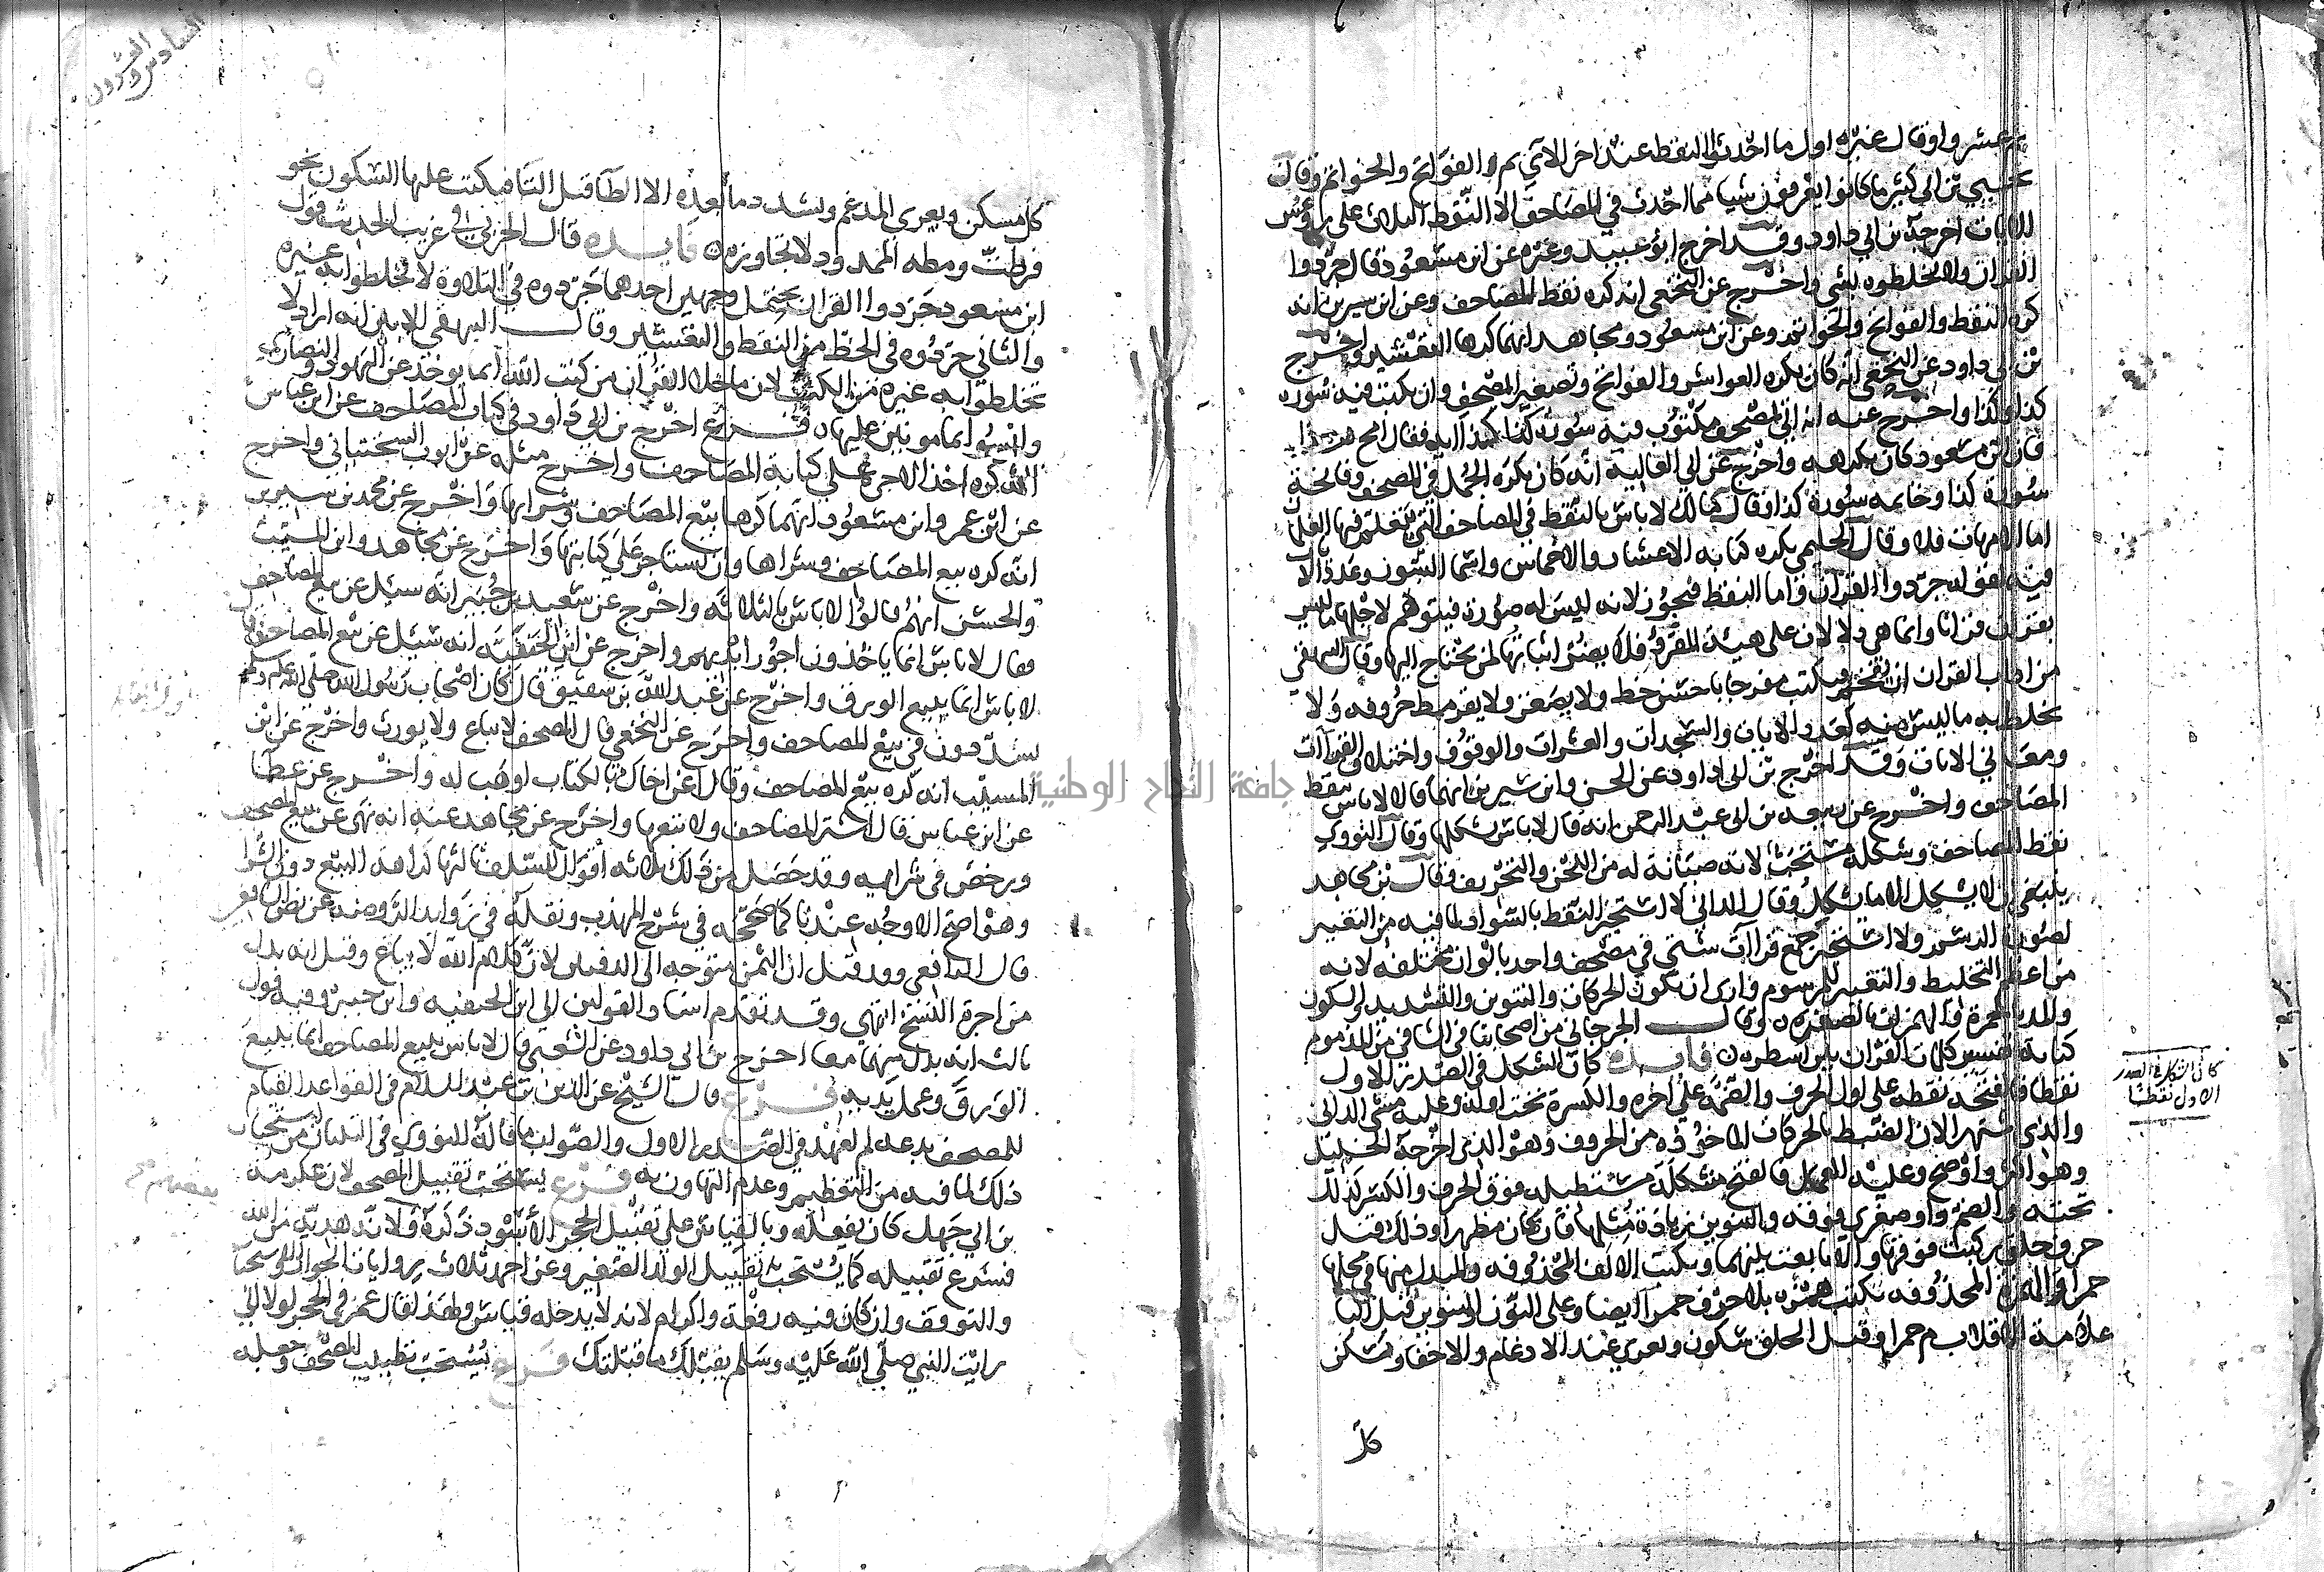 ثم عشروا وقال غيره اول ما احدثوا النقط عند اخر الآي ثم الفواتح والخواتم وقال
يحيي بن ابي كثير ما كانوا يعرفون شيا مما احدث في المصاحف الا النقط الثلاث على رؤس
الايات اخرجه بن ابي داود وقد اخرج ابو عبيد وغيره عن ابن مسعود قال جردوا
القران ولا تخلطوه بشي واخرج عن النخعي انه كره نقط المصاحف وعن ابن سيرين انه
كره النقط والفواتح والخواتم وعن ابن مسعود ومجاهد انهما كرها التعشير واخرج
بن ابي داود عن النخعي انه كان يكره العواشر والفواتح وتصغير المصحف وان يكتب فيه سورة
كذا وكذا واخرج عنه انه اتي بمصحف مكتوب فيه سورة كذا كذا اية فقال امح هذا
فان ابن مسعود كان يكرهه واخرج عن ابي العالية انه كان يكره الجمل في المصحف وفاتحة
سورة كذا وخاتمه سورة كذا وقال مالك لا باس بالنقط في المصاحف التي تتعلم فيها الغلمان
اما الامهات فلا وقال الحليمي يكره كتابه الاعشار والاخماس واسما السور وعدد الا
فيه لقوله جردوا القرآن واما النقط فيجوز لانه ليس له صورة فيتوهم لاجلها ما ليس
بقران قرانا وانما هي دلالات على هيئة المقرؤ فلا يضر اثباتها لمن يحتاج اليها وقال البيهقي
من اداب القران ان يفخم فيكتب مفرجا باحسن خط ولا يصغر ولا يقرمط حروفه ولا
يخلط به ما ليس منه كعدد الايات والسجدات والعشرات والوقوف واختلاف القراآت
ومعاني الايات وقد اخرج بن ابي داود عن الحسن وابن سيرين انهما قالا لا باس بنقط
المصاحف واخرج عن ربيعه بن ابي عبد الرحمن انه قال لا باس بشكلها وقال النووي
نقط المصاحف وشكله مستحب لانه صيانة له من اللحن والتحريف وقال بن مجاهد
ينبغي ان لا يشكل الا ما يشكل وقال الداني لا استجيز النقط بالسواد لما فيه من التغيير
لصورة الرسم ولا استجيز جمع قراآت شتي في مصحف واحد بالوان مختلفه لانه
من اعظم التخليط والتغيير للمرسوم وارى ان تكون الحركات والتنوين والتشديد والسكون
والمد بالحمرة والهمزات بالصفرة وقال الجرجاني من اصحابنا في الشافي من المذموم
كتابة تفسير كلمات القران بين اسطره فايدة كان الشكل في الصدر الاول
نقطا فالفتحة نقطه على اول الحرف والضمة علي اخره والكسرة تحت اوله وعليه مشى الداني
والذي اشتهر الان الضبط بالحركات الماخوذه من الحروف وهو الذي اخرجة الخليل
وهو اكثر واوضح وعليه العمل فالفتح شكلة مستطيله فوق الحرف والكسر كذلك
تحته والضم واو صغرى فوقه والتنوين زيادة مثلها فان كان مظهرا وذلك قبل
حرف حلق ركبت فوقها والا تابعت بينهما وتكتب الالف المحذوفه والمبدل منها في محلها
حمرا والهمزة المحذوفه تكتب همزه بلا حرف حمرا ايضا وعلى النون والتنوين قبل البا
علامة الاقلاب م حمرا وقبل الحلق سكون وتعرى عند الادغام والاخفا وتسكن
كل
كان الشكل في الصدر
الاول نقطا
السادس
والعشرون
كل مسكن ويعرى المدغم ويشدد ما بعده الا الطا قبل التا فيكتب عليها السكون نحو
فرطت ومطه الممدود لا تجاوزه فايدة قال الحربي في غريب الحديث قول
ابن مسعود جردوا القران يحتمل وجهين احدهما جردوه في التلاوة لا تخلطوا به غيره
والثاني جردوه في الخط من النقط والتعشير وقال البيهقي الابين انه اراد لا
تخلطوا به غيره من الكتب لان ما خلا القران من كتب الله انما يوخذ عن اليهود والنصارى
وليسوا بمامونين عليها فرع اخرج بن ابي داود في كتاب المصاحف عن ابن عباس
انه كره اخذ الاجرة علي كتابة المصاحف واخرج مثله عن ايوب السختياني واخرج
عن ابن عمر وابن مسعود انهما كرها بيع المصاحف وشراها واخرج عن محمد بن سيرين
انه كره بيع المصاحف وشراها وان يستاجر على كتابتها واخرج عن مجاهد وابن المسيب
والحسن انهم قالوا لا باس بالثلاثه واخرج عن سعيد بن جبير انه سيل عن بيع المصاحف
فقال لا باس انما ياخذون اجور ايديهم واخرج عن ابن الحنفيه انه سيل عن بيع المصاحف قال
لا باس انما يبيع الورق واخرج عن عبد الله بن شقيق قال كان اصحاب رسول الله صلى الله عليه وسلم
يشددون في بيع المصاحف واخرج عن النخعي قال المصحف لا يباع ولا يورث واخرج عن ابن
المسيب انه كره بيع المصاحف وقال اعن اخاك بالكتاب او هب له واخرج عن عطا
عن ابن عباس قال اشتر المصاحف ولا تبعها واخرج عن مجاهد عنه انه نهى عن بيع المصحف
ورخص في شرايه وقد حصل من ذلك ثلاثه اقوال للسلف ثالثها كراهة البيع دون الشرا
وهو اصح الاوجه عندنا كما صححه في شرح المهذب ونقله في زوايد الروضه عن نص الشافعي
قال الرافعي وقد قيل ان الثمن متوجه الى الدفتين لان كلام الله لا يباع وقيل انه بدل
من اجرة النسخ انتهي وقد تقدم اسناد القولين الى ابن الحنفيه وابن جبير وفيه قول
ثالث انه بدل منهما معا اخرج بن ابي داود عن الشعبي قال لا باس ببيع المصاحف انما يبيع
الورق وعمل يديه فرع قال الشيخ عز الدين بن عبد السلام في القواعد القيام
للمصحف بدعه لم تعهد في الصدر الاول والصواب ما قاله النووي في التبيان من استحباب
ذلك لما فيه من التعظيم وعدم التهاون به فرع يستحب تقبيل المصحف لان عكرمه
بن ابي جهل كان يفعله وبالقياس على تقبيل الحجر الاسود ذكره ولانه هدية من الله
فشرع تقبيله كما يستحب تقبيل الولد الصغير وعن احمد ثلاث روايات الجواز والاستحباب
والتوقف وان كان فيه رفعة واكرام لانه لا يدخله قياس ولهذا قال عمر في الحجر لولا اني
رايت النبي صلى الله عليه وسلم يقبلك ما قبلتك فرع يستحب تطييب المصحف وجعله
جامعة النجاح الوطنية